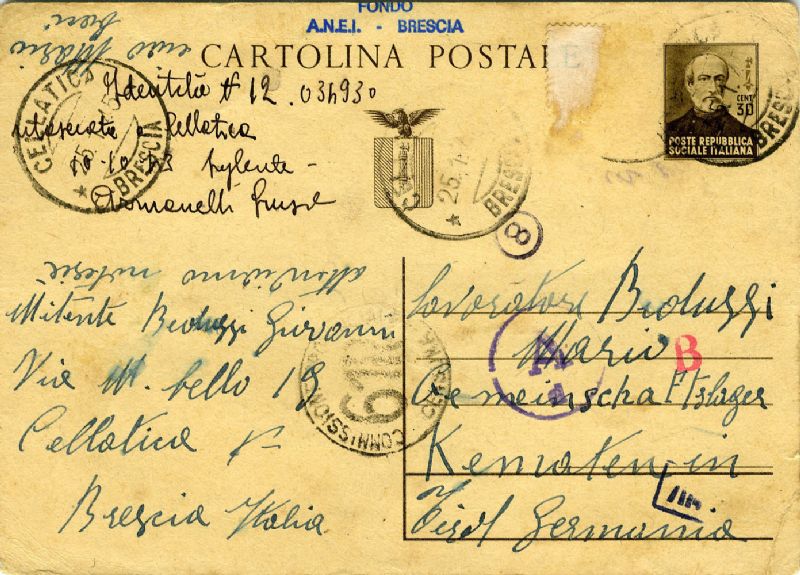 FONDO
A.N.E.I. - BRESCIA
CARTOLINA POSTALE
caro Mario
Identità N 12.034930
rilasciata a Cellatica
10-10-43
CELLATICA
BRESCIA
25
BRESCIA
BRESCIA
CENT. 30
POSTE REPUBBLICA
SOCIALE ITALIANA
8
attendiamo notizie
Mitente Bioluggi Giovanni
Via M. bello 18
Cellatica
Brescia Italia
61
COMMISSIONE
Lavoratore Bioluggi
Mario
Gemeinschaftslager
Kematen-in
Tirol Germania
A
a
B